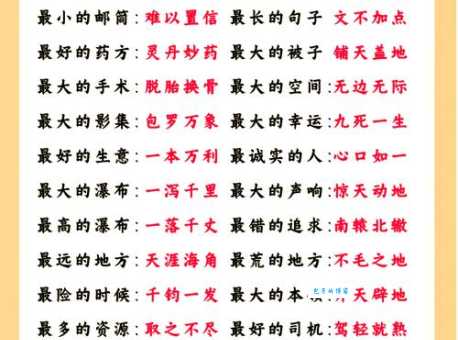 最小的邮筒:难以置信 最长的句子 文不加点
最好的药方:灵丹妙药 最大的被子 铺天盖地
最大的手术:脱胎换骨 最大的空间:无边无际
最大的影集:包罗万象 最大的幸运:九死一生
最好的生意:一本万利 最诚实的人:心口如一
最大的瀑布:一泻千里 最大的声响:惊天动地
最高的瀑布:一落千丈 最错的追求:南辕北辙
最远的地方:天涯海角 最荒的地方:不毛之地
最险的时候:千钧一发 最大的本 天辟地
最多的资源:取之不尽 最好的司机:驾轻就熟